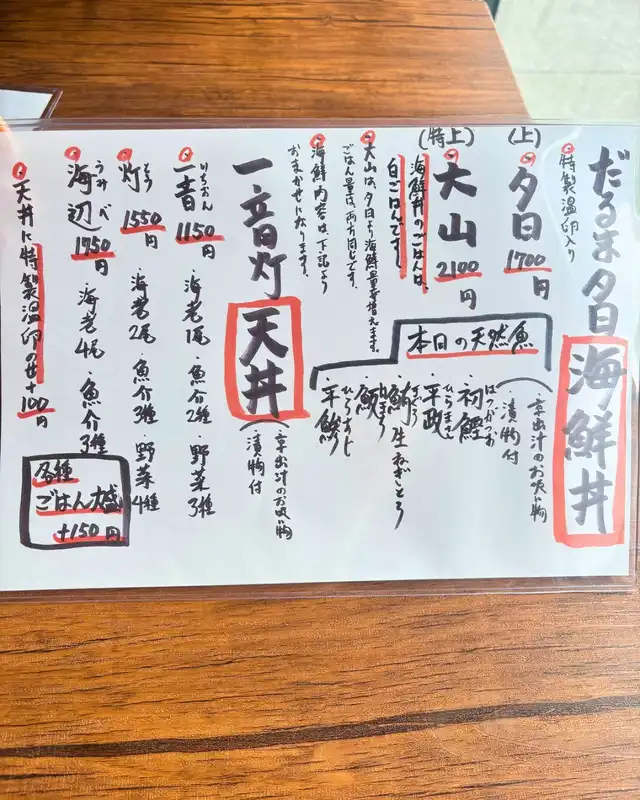 だるま夕日海鮮丼
(幸出汁のお吸い物
・漬物付
・特製温卵入り
(上)
夕日 1700円
(特上)
大山 2100円
海鮮丼のごはんは、
白ごはんです!
大山は、夕日より海鮮量等増えます。
ごはん量は、両方同じです。
海鮮内容は、下記より
おまかせになります。
本日の天然魚
・初鰹
はつがつお
・平政
ひらまさ
・鮪 生ねぎとろ
まぐろ
・平鯵
ひらあじ
一音灯天丼
(幸出汁のお吸い物
・漬物付
一音 1150円 ・海老1尾 ・魚介2種 ・野菜3種
いちおん
灯 1550円 ・海老2尾 ・魚介3種 ・野菜4種
海辺 1750円 ・海老4尾 ・魚介3種
うみべ
天丼に特製温卵のせ+100円
各種
ごはん大盛
+150円